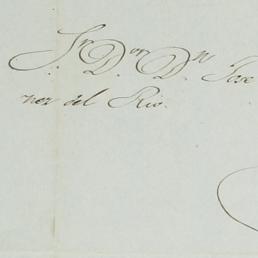 Sr. Dor. Dn. Jose
ner del Rio.